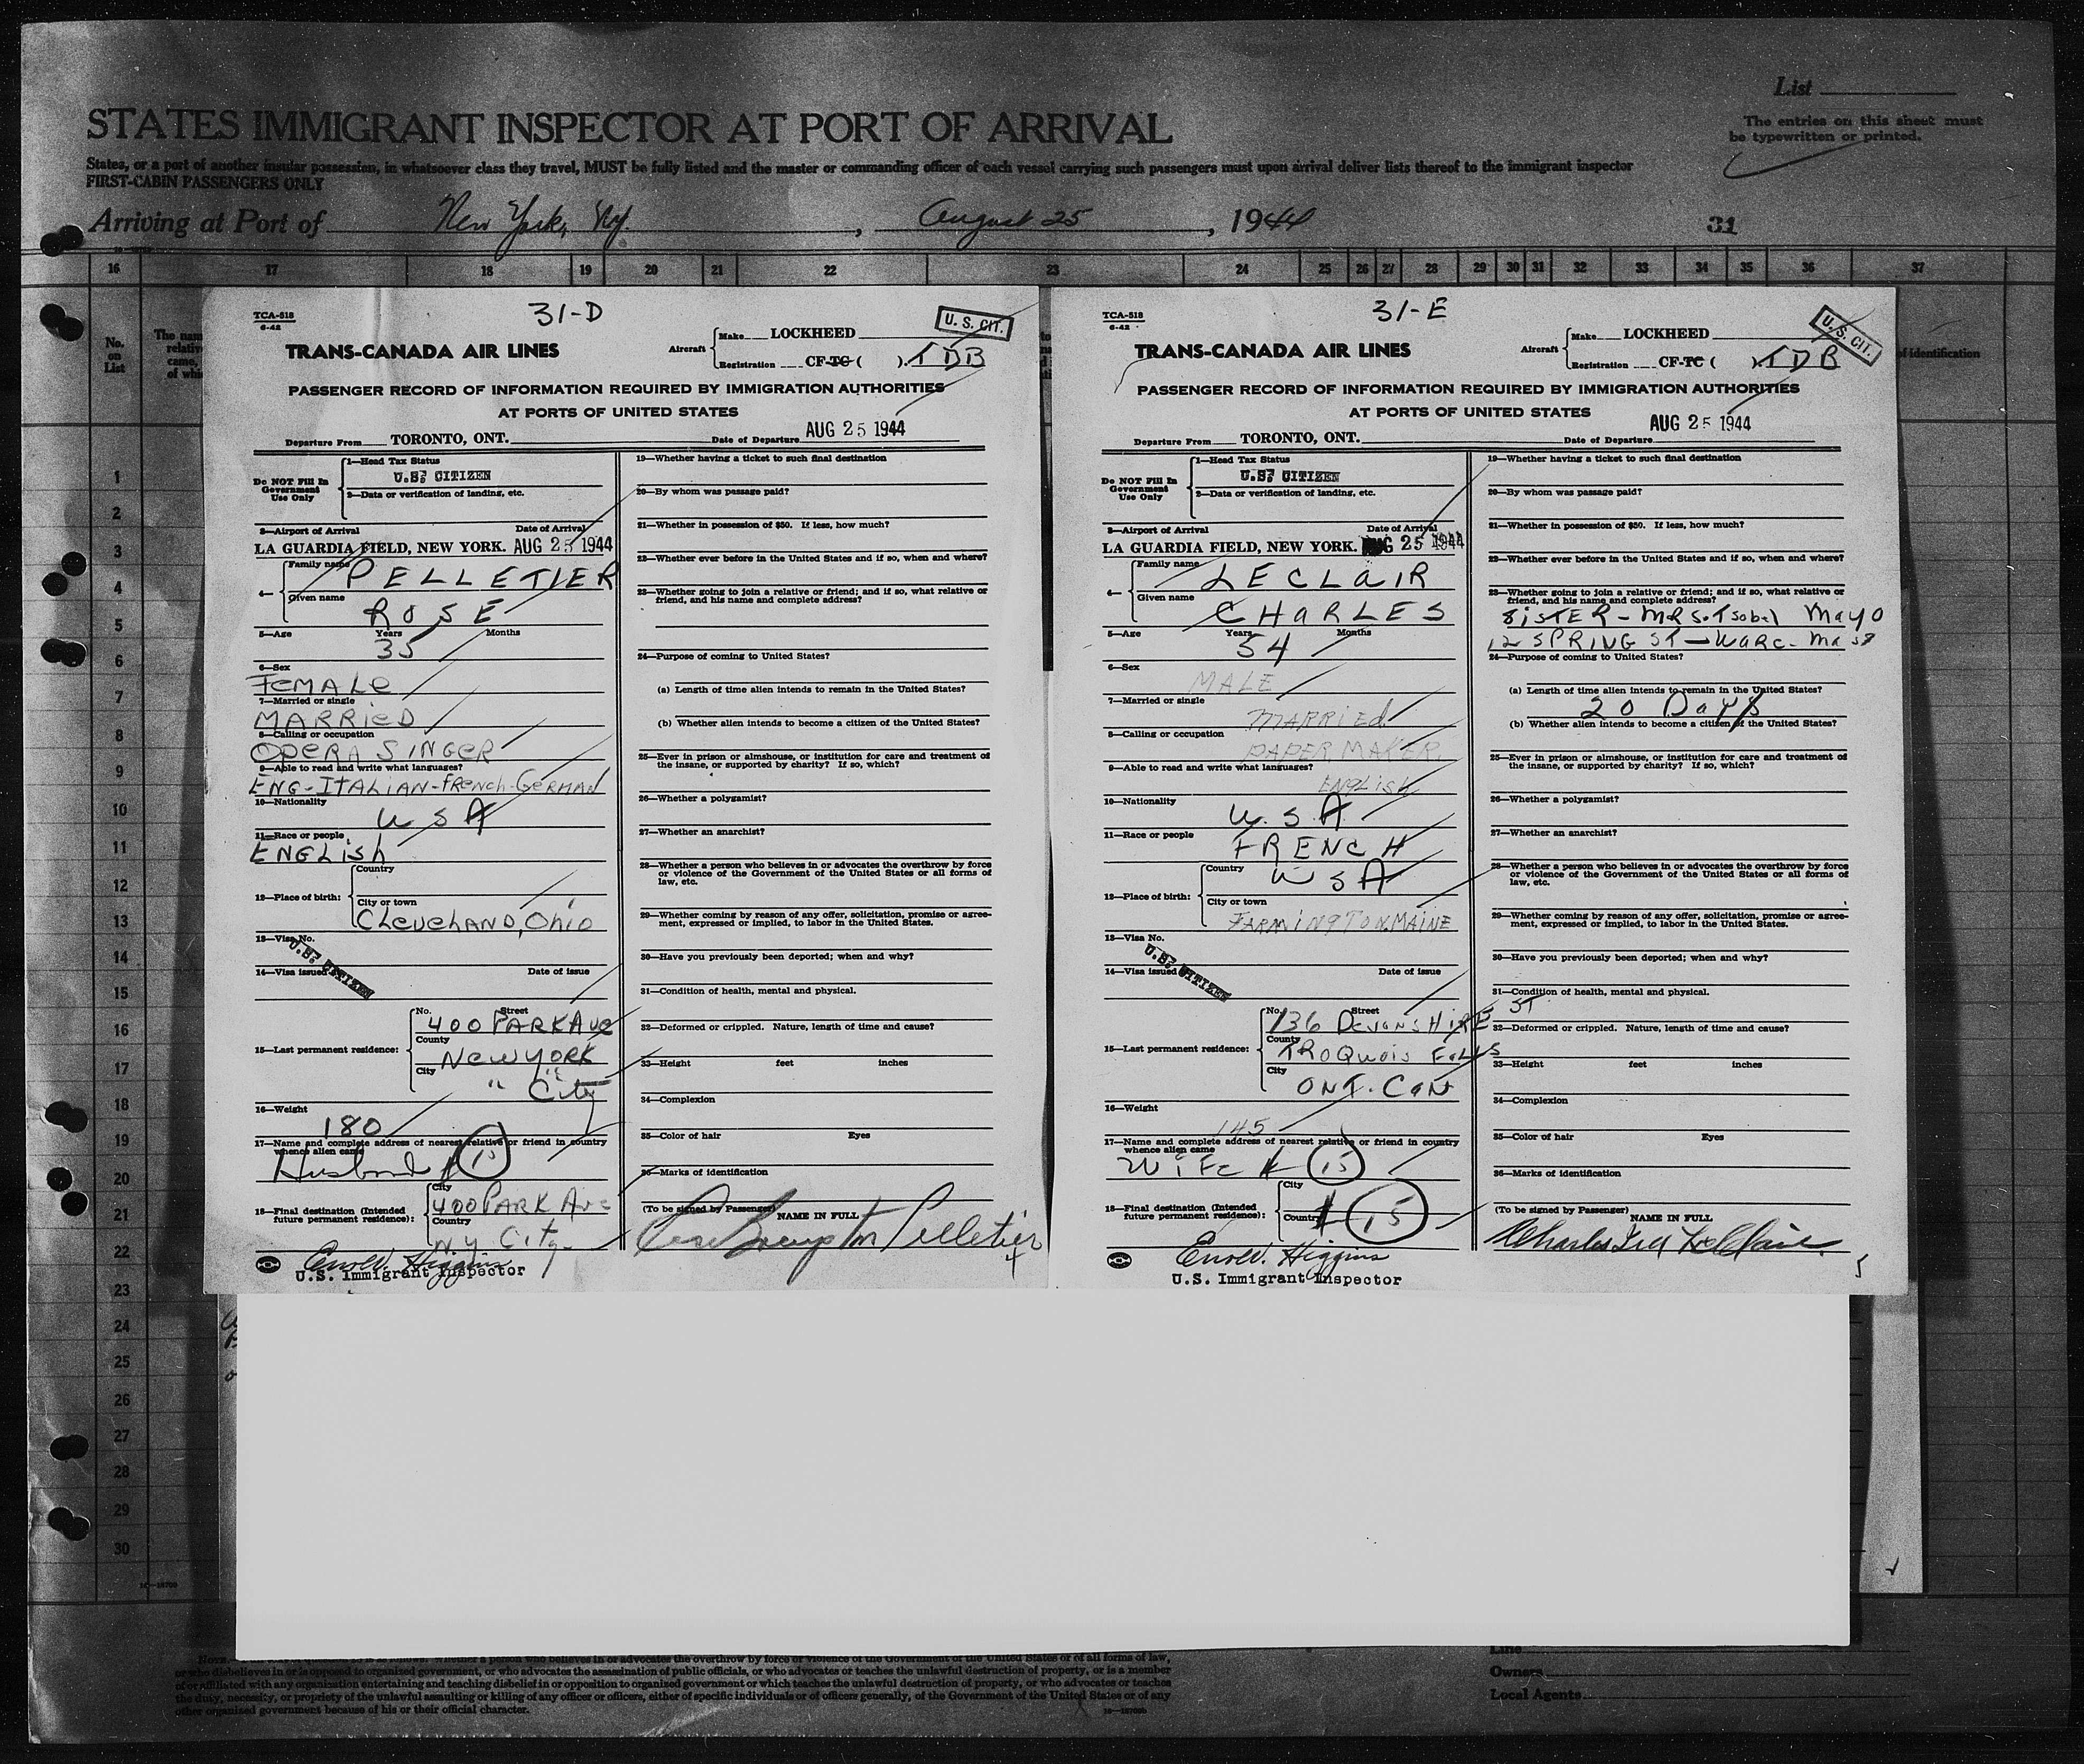 List
STATES IMMIGRANT INSPECTOR AT PORT OF ARRIVAL
The entries on this sheet must
be typewritten or printed.
States, or a port of another insular possession, in whatsoever class they travel, MUST be fully listed and the master or commanding officer of each vessel carrying such passengers must upon arrival deliver lists thereof to the immigrant inspector
FIRST-CABIN PASSENGERS ONLY
Arriving at Port of New York, NY. , August 25 , 1944 31
16 17 18 19 20 21 22 23 24 25 26 27 28 29 30 31 32 33 34 35 36 37
No.
on
List
of identification
1
2
3
4
5
6
7
8
9
10
11
12
13
14
15
16
17
18
19
20
21
22
23
24
25
26
27
28
29
30
TCA-518
6-42
31-D
U. S. CIT.
TRANS-CANADA AIR LINES
Aircraft
Make LOCKHEED
Registration CF-TC ( ) TDB
PASSENGER RECORD OF INFORMATION REQUIRED BY IMMIGRATION AUTHORITIES
AT PORTS OF UNITED STATES
Departure From TORONTO, ONT. Date of Departure AUG 25 1944
Do NOT Fill In
Government
Use Only
1—Head Tax Status
U.S. CITIZEN
2—Data or verification of landing, etc.
3—Airport of Arrival Date of Arrival
LA GUARDIA FIELD, NEW YORK. AUG 25 1944
4—
Family name PELLETIER
Given name ROSE
5—Age Years Months
35
6—Sex
FEMALE
7—Married or single
MARRIED
8—Calling or occupation
OPERA SINGER
9—Able to read and write what languages?
ENG-ITALIAN-French-GERMAN
10—Nationality
U S A
11—Race or people
ENGLISH
12—Place of birth:
Country
City or town
CLEVELAND, OHIO
13—Visa No.
U.S. CITIZEN
14—Visa issued Date of issue
15—Last permanent residence:
No. Street
400 PARK AVE
County
NEW YORK
City
" " City
16—Weight
180
17—Name and complete address of nearest relative or friend in country
whence alien came
Husband
15
18—Final destination (Intended
future permanent residence):
City
400 PARK Ave
Country
NY City
Higgins
U.S. Immigrant Inspector
19—Whether having a ticket to such final destination
20—By whom was passage paid?
21—Whether in possession of $50. If less, how much?
22—Whether ever before in the United States and if so, when and where?
23—Whether going to join a relative or friend; and if so, what relative or
friend, and his name and complete address?
24—Purpose of coming to United States?
(a) Length of time alien intends to remain in the United States?
(b) Whether alien intends to become a citizen of the United States?
25—Ever in prison or almshouse, or institution for care and treatment of
the insane, or supported by charity? If so, which?
26—Whether a polygamist?
27—Whether an anarchist?
28—Whether a person who believes in or advocates the overthrow by force
or violence of the Government of the United States or all forms of
law, etc.
29—Whether coming by reason of any offer, solicitation, promise or agree-
ment, expressed or implied, to labor in the United States.
30—Have you previously been deported; when and why?
31—Condition of health, mental and physical.
32—Deformed or crippled. Nature, length of time and cause?
33—Height feet inches
34—Complexion
35—Color of hair Eyes
36—Marks of identification
(To be signed by Passenger) NAME IN FULL
Rose Pelletier
4
TCA-518
6-42
31-E
U. S. CIT.
TRANS-CANADA AIR LINES
Aircraft
Make LOCKHEED
Registration CF-TC ( ) TDB
PASSENGER RECORD OF INFORMATION REQUIRED BY IMMIGRATION AUTHORITIES
AT PORTS OF UNITED STATES
Departure From TORONTO, ONT. Date of Departure AUG 25 1944
Do NOT Fill In
Government
Use Only
1—Head Tax Status
U.S. CITIZEN
2—Data or verification of landing, etc.
3—Airport of Arrival Date of Arrival
LA GUARDIA FIELD, NEW YORK. AUG 25 1944
4—
Family name LECLAIR
Given name CHARLES
5—Age Years Months
54
6—Sex
MALE
7—Married or single
MARRIED
8—Calling or occupation
PAPER MAKER
9—Able to read and write what languages?
ENGLISH
10—Nationality
U. S. A.
11—Race or people
FRENCH
12—Place of birth:
Country
U S A
City or town
FARMINGTON, MAINE
13—Visa No.
U.S. CITIZEN
14—Visa issued Date of issue
15—Last permanent residence:
No. Street
136 DEVONSHIRE ST
County
IROQUOIS FALLS
City
ONT. CAN
16—Weight
145
17—Name and complete address of nearest relative or friend in country
whence alien came
WIFE
15
18—Final destination (Intended
future permanent residence):
City
Country
15
Higgins
U.S. Immigrant Inspector
19—Whether having a ticket to such final destination
20—By whom was passage paid?
21—Whether in possession of $50. If less, how much?
22—Whether ever before in the United States and if so, when and where?
23—Whether going to join a relative or friend; and if so, what relative or
friend, and his name and complete address?
SISTER - MRS. Isobel Mayo
12 SPRING ST - WARE - Mass
24—Purpose of coming to United States?
(a) Length of time alien intends to remain in the United States?
20 Days
(b) Whether alien intends to become a citizen of the United States?
25—Ever in prison or almshouse, or institution for care and treatment of
the insane, or supported by charity? If so, which?
26—Whether a polygamist?
27—Whether an anarchist?
28—Whether a person who believes in or advocates the overthrow by force
or violence of the Government of the United States or all forms of
law, etc.
29—Whether coming by reason of any offer, solicitation, promise or agree-
ment, expressed or implied, to labor in the United States.
30—Have you previously been deported; when and why?
31—Condition of health, mental and physical.
32—Deformed or crippled. Nature, length of time and cause?
33—Height feet inches
34—Complexion
35—Color of hair Eyes
36—Marks of identification
(To be signed by Passenger) NAME IN FULL
Charles LeClair
5
or who disbelieves in or is opposed to organized government, or who advocates the assassination of public officials, or who advocates or teaches the unlawful destruction of property, or is a member
of or affiliated with any organization entertaining and teaching disbelief in or opposition to organized government or which teaches the unlawful destruction of property, or who advocates or teaches
the duty, necessity, or propriety of the unlawful assaulting or killing of any officer or officers, either of specific individuals or of officers generally, of the Government of the United States or of any
other organized government because of his or their official character.
Line
Owners
Local Agents